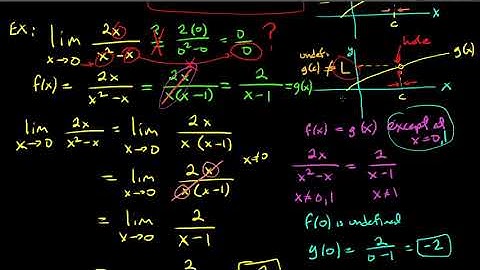 Ex: lim x→0 2x/(x²-x) ≠ 2(0)/(0²-0) = 0/0 ?
f(x) = 2x/(x²-x) = 2x/(x(x-1)) = 2/(x-1) = g(x)
lim x→0 2x/(x²-x) = lim x→0 2x/(x(x-1))
= lim x→0 2x/(x(x-1)) x≠0
= lim x→0 2/(x-1)
c x
hole
y
g(c) ≠ L
g(x)
c x
f(x) = g(x) except at x=0,1
2x/(x²-x) = 2/(x-1)
x≠0,1 x≠1
f(0) is undefined
g(0) = 2/(0-1) = -2